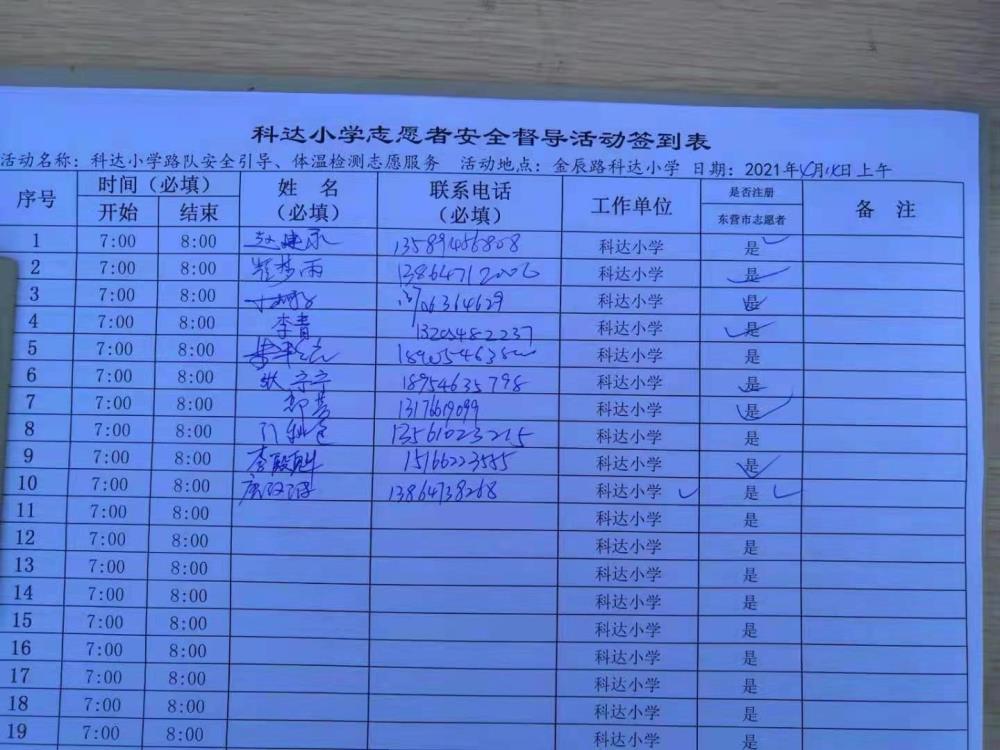 科达小学志愿者安全督导活动签到表
活动名称：科达小学路队安全引导、体温检测志愿服务 活动地点：金辰路科达小学 日期：2021年 月 日上午
序号 时间（必填） 姓 名（必填） 联系电话（必填） 工作单位 是否注册东营市志愿者 备 注
开始 结束
1 7:00 8:00 13589456808 科达小学 是
2 7:00 8:00 科达小学 是
3 7:00 8:00 科达小学 是
4 7:00 8:00 李青 13205482237 科达小学 是
5 7:00 8:00 科达小学 是
6 7:00 8:00 18954635798 科达小学 是
7 7:00 8:00 科达小学 是
8 7:00 8:00 13561023215 科达小学 是
9 7:00 8:00 15166223555 科达小学 是
10 7:00 8:00 13864738268 科达小学 是
11 7:00 8:00 科达小学 是
12 7:00 8:00 科达小学 是
13 7:00 8:00 科达小学 是
14 7:00 8:00 科达小学 是
15 7:00 8:00 科达小学 是
16 7:00 8:00 科达小学 是
17 7:00 8:00 科达小学 是
18 7:00 8:00 科达小学 是
19 7:00 8:00 科达小学 是